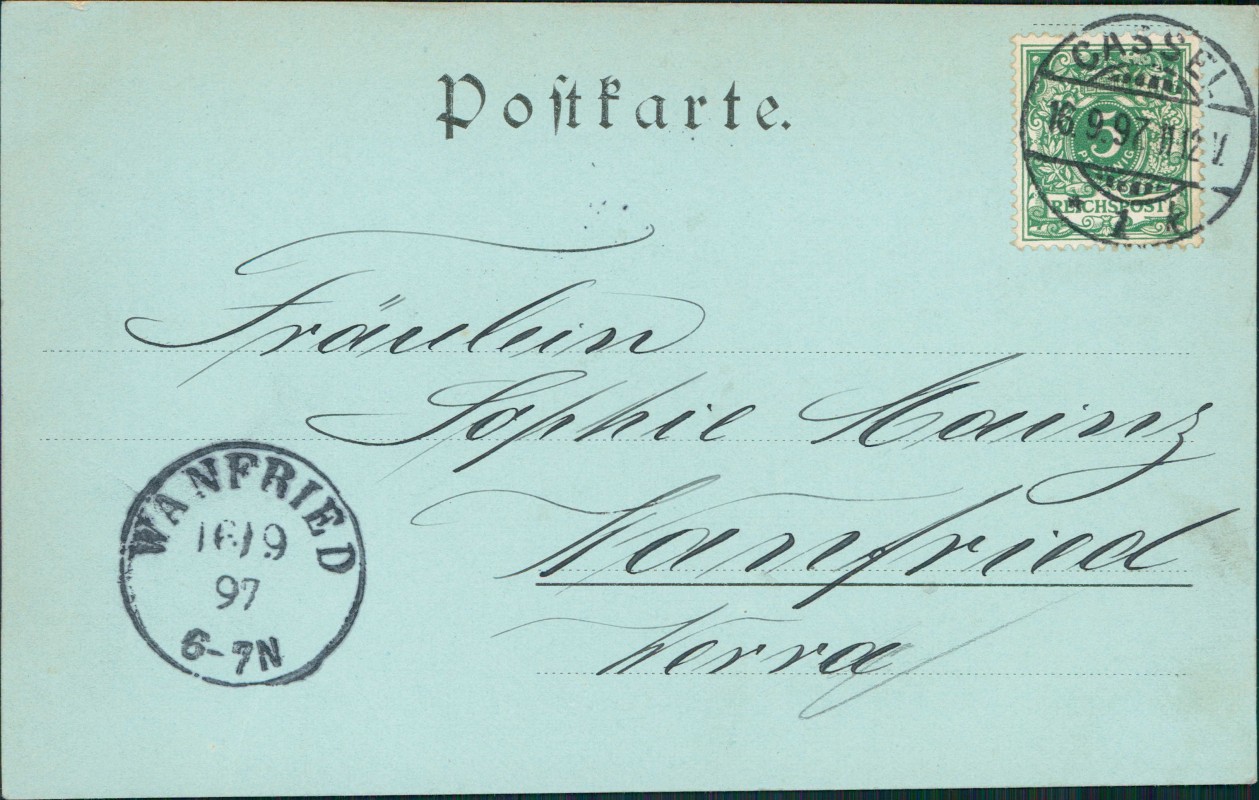 Postkarte.
CASSEL
16.9.97. 11-12 V.
* 1 k
5
PFENNIG
REICHSPOST
Fräulein
Sophie Mainz
Wanfried
Werra
WANFRIED
16/9
97
6-7N